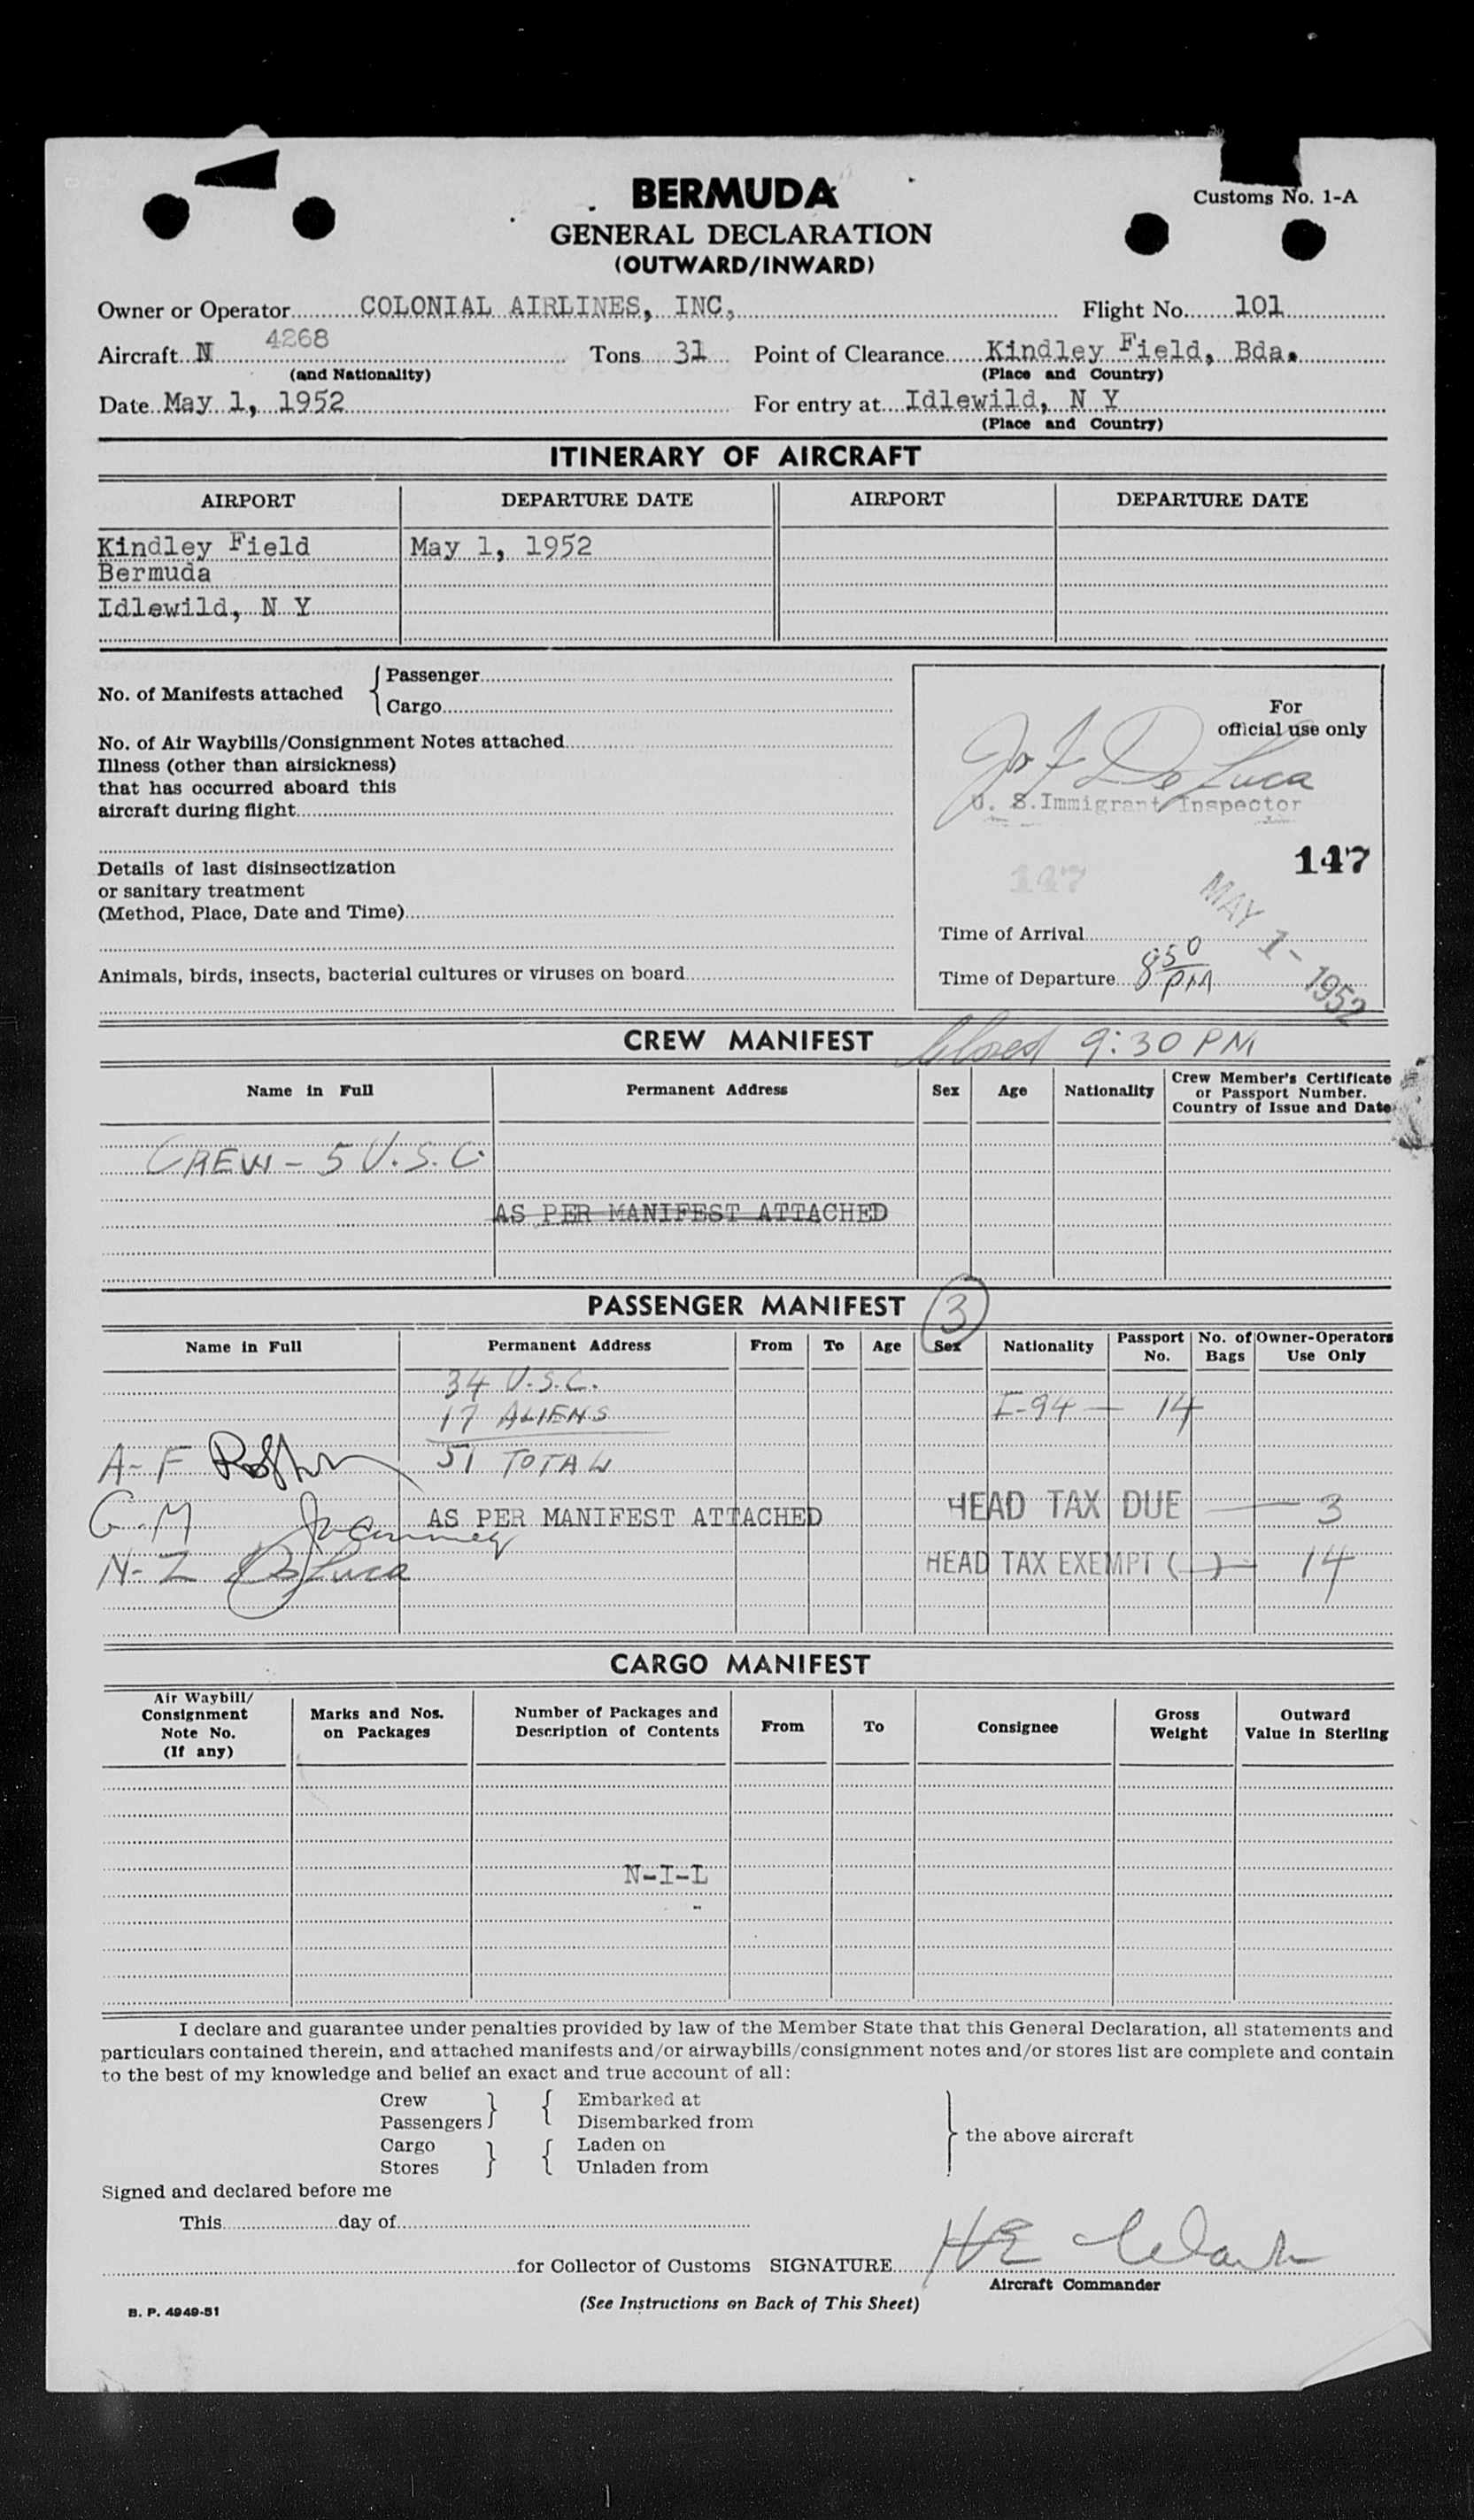 BERMUDA
Customs No. 1-A
GENERAL DECLARATION
(OUTWARD/INWARD)
Owner or Operator COLONIAL AIRLINES, INC, Flight No. 101
Aircraft N 4268 Tons 31 Point of Clearance Kindley Field, Bda.
(and Nationality) (Place and Country)
Date May 1, 1952 For entry at Idlewild, N Y
(Place and Country)
ITINERARY OF AIRCRAFT
AIRPORT DEPARTURE DATE AIRPORT DEPARTURE DATE
Kindley Field May 1, 1952
Bermuda
Idlewild, N Y
No. of Manifests attached { Passenger
Cargo
No. of Air Waybills/Consignment Notes attached
Illness (other than airsickness)
that has occurred aboard this
aircraft during flight
Details of last disinsectization
or sanitary treatment
(Method, Place, Date and Time)
Animals, birds, insects, bacterial cultures or viruses on board
For
official use only
De Luca
U. S. Immigrant Inspector
147
147
MAY 1 - 1952
Time of Arrival
Time of Departure 8 50 PM
CREW MANIFEST Closed 9:30 PM
Name in Full Permanent Address Sex Age Nationality Crew Member's Certificate
or Passport Number.
Country of Issue and Date
CREW - 5 U.S.C.
AS PER MANIFEST ATTACHED
PASSENGER MANIFEST 3
Name in Full Permanent Address From To Age Sex Nationality Passport No. No. of Bags Owner-Operators Use Only
34 U.S.C.
17 ALIENS I-94 — 14
A-F 51 TOTAL
G-M AS PER MANIFEST ATTACHED HEAD TAX DUE — 3
N-Z De Luca HEAD TAX EXEMPT ( ) - 14
CARGO MANIFEST
Air Waybill/
Consignment
Note No.
(If any)
Marks and Nos.
on Packages
Number of Packages and
Description of Contents
From To Consignee
Gross
Weight
Outward
Value in Sterling
N-I-L
I declare and guarantee under penalties provided by law of the Member State that this General Declaration, all statements and
particulars contained therein, and attached manifests and/or airwaybills/consignment notes and/or stores list are complete and contain
to the best of my knowledge and belief an exact and true account of all:
Crew } { Embarked at
Passengers Disembarked from
Cargo } { Laden on } the above aircraft
Stores Unladen from
Signed and declared before me
This day of
for Collector of Customs SIGNATURE H E
Aircraft Commander
(See Instructions on Back of This Sheet)
B. P. 4949-51